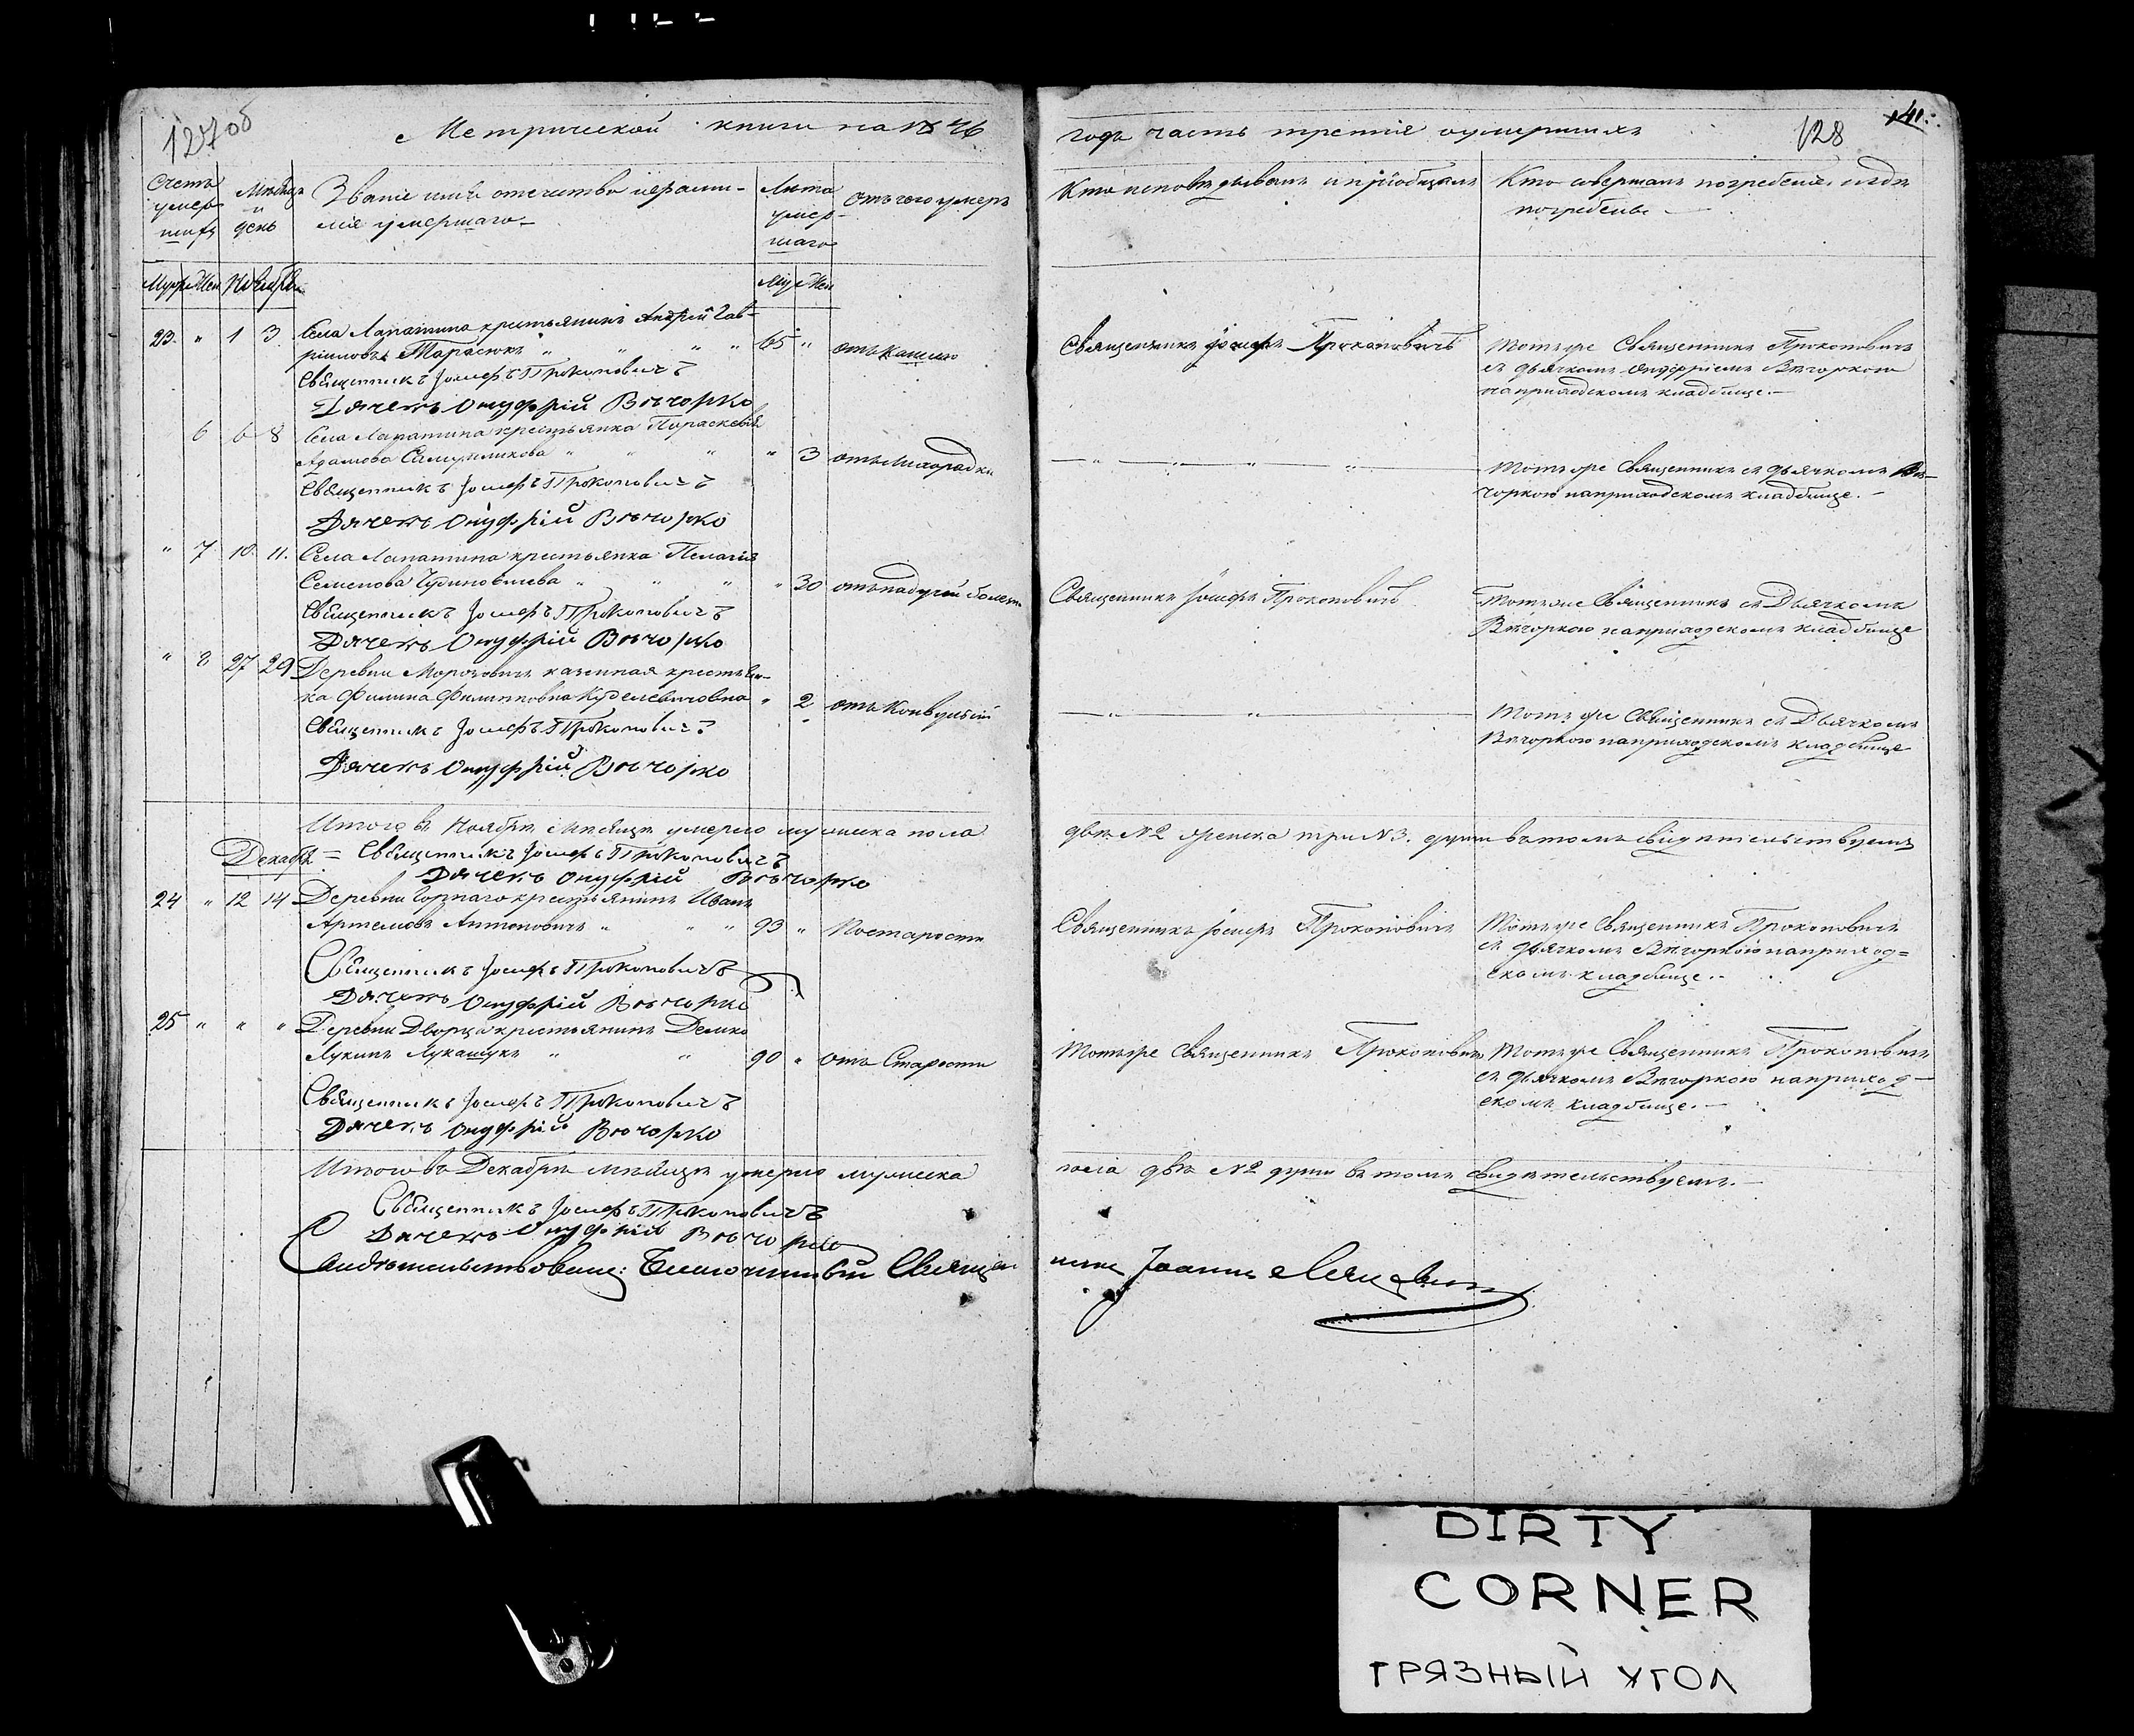 127 об
Метрической книги на 1846
Счетъ умершихъ
Мѣсяцъ и день
Званіе имя отечитво и фамилія умершаго
Лѣта умершаго
Отъ чего умеръ
Муж Жен Ноября
Муж Жен
23. " 1 3 Села Лапатина крестьянинъ Андрей Гав-
рииловъ Тарасюкъ " " " " 65 " отъ Кашлю
Священникъ Іосифъ Прокоповичъ
Дячекъ Онуфрій Вѣчорко
6 6 8 Села Лапатина крестьянка Параскева
Адамова " " " " 3 отъ Лихорадки
Священникъ Іосифъ Прокоповичъ
Дячекъ Онуфрій Вѣчорко
" 7 10. 11. Села Лапатина крестьянка Пелагія
Семенова " " " " 30 отъ падучей болезн
Священникъ Іосифъ Прокоповичъ
Дячекъ Онуфрій Вѣчорко
" 8 27 29 Деревни Морозовичъ казенная крестьян-
ка Филиповна " 2 отъ Конвульсій
Священникъ Іосифъ Прокоповичъ
Дячекъ Онуфрій Вѣчорко
Итого въ Ноябрѣ Мѣсяцѣ умерло мужеска пола
Декабрь = Священникъ Іосифъ Прокоповичъ
Дячекъ Онуфрій Вѣчорко
24 " 12 14 Деревни крестьянинъ Иванъ
Артемовъ Антоновичъ " " " 93 " По старости
Священникъ Іосифъ Прокоповичъ
Дячекъ Онуфрій Вѣчорко
25 " " " Деревни Дворца крестьянинъ Демко
Лукинъ Лукашукъ " " 90 " отъ Старости
Священникъ Іосифъ Прокоповичъ
Дячекъ Онуфрій Вѣчорко
Итого въ Декабрѣ мѣсяцѣ умерло мужеска
Священникъ Іосифъ Прокоповичъ
Дячекъ Онуфрій Вѣчорко
Свидѣтельствовалъ: Благочинный Священ
141.
128
года часть третія о умершихъ
Кто исповѣдывалъ и пріобщалъ
Кто совершалъ погребеніе и гдѣ
погребены
Священникъ Іосифъ Прокоповичъ
Тотъ же Священникъ Прокоповичъ
съ дьячкомъ Онуфріемъ Вѣчоркою
на приходскомъ кладбище.
Тотъ же Священникъ съ дьячкомъ Вѣ-
чоркою на приходскомъ кладбище.
Священникъ Іосифъ Прокоповичъ
Тотъ же Священникъ съ Дьячкомъ
Вѣчоркою на приходскомъ кладбище
Тотъ же Священникъ съ Дьячкомъ
Вѣчоркою на приходскомъ кладбище
двѣ №2 женска три №3. души въ томъ свидѣтельствуемъ
Священникъ Іосифъ Прокоповичъ
Тотъ же Священникъ Прокоповичъ
съ дьячкомъ Вѣчоркою на приход=
скомъ кладбище.
Тотъ же Священникъ Прокоповичъ
Тотъ же Священникъ Прокоповичъ
съ дьячкомъ Вѣчоркою на приход-
скомъ кладбище.
пола двѣ №2 души въ томъ свидѣтельствуемъ.
никъ Іоаннъ
DIRTY
CORNER
ГРЯЗНЫЙ УГОЛ